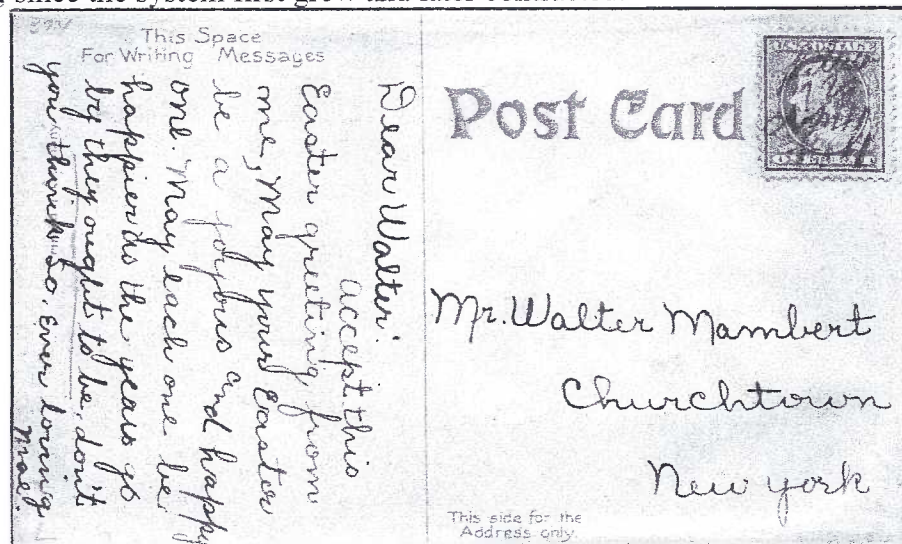 since the system first grew and later
This Space
For Writing Messages
Dear Walter:
accept this
Easter greeting from
me, May your Easter
be a joyous and happy
one. May each one be
happier as the years go
by they ought to be, don't
you think so. Ever loving
Mae.
Post Card
U.S. POSTAGE
Mr. Walter Mambert
Churchtown
New York
This side for the
Address only.